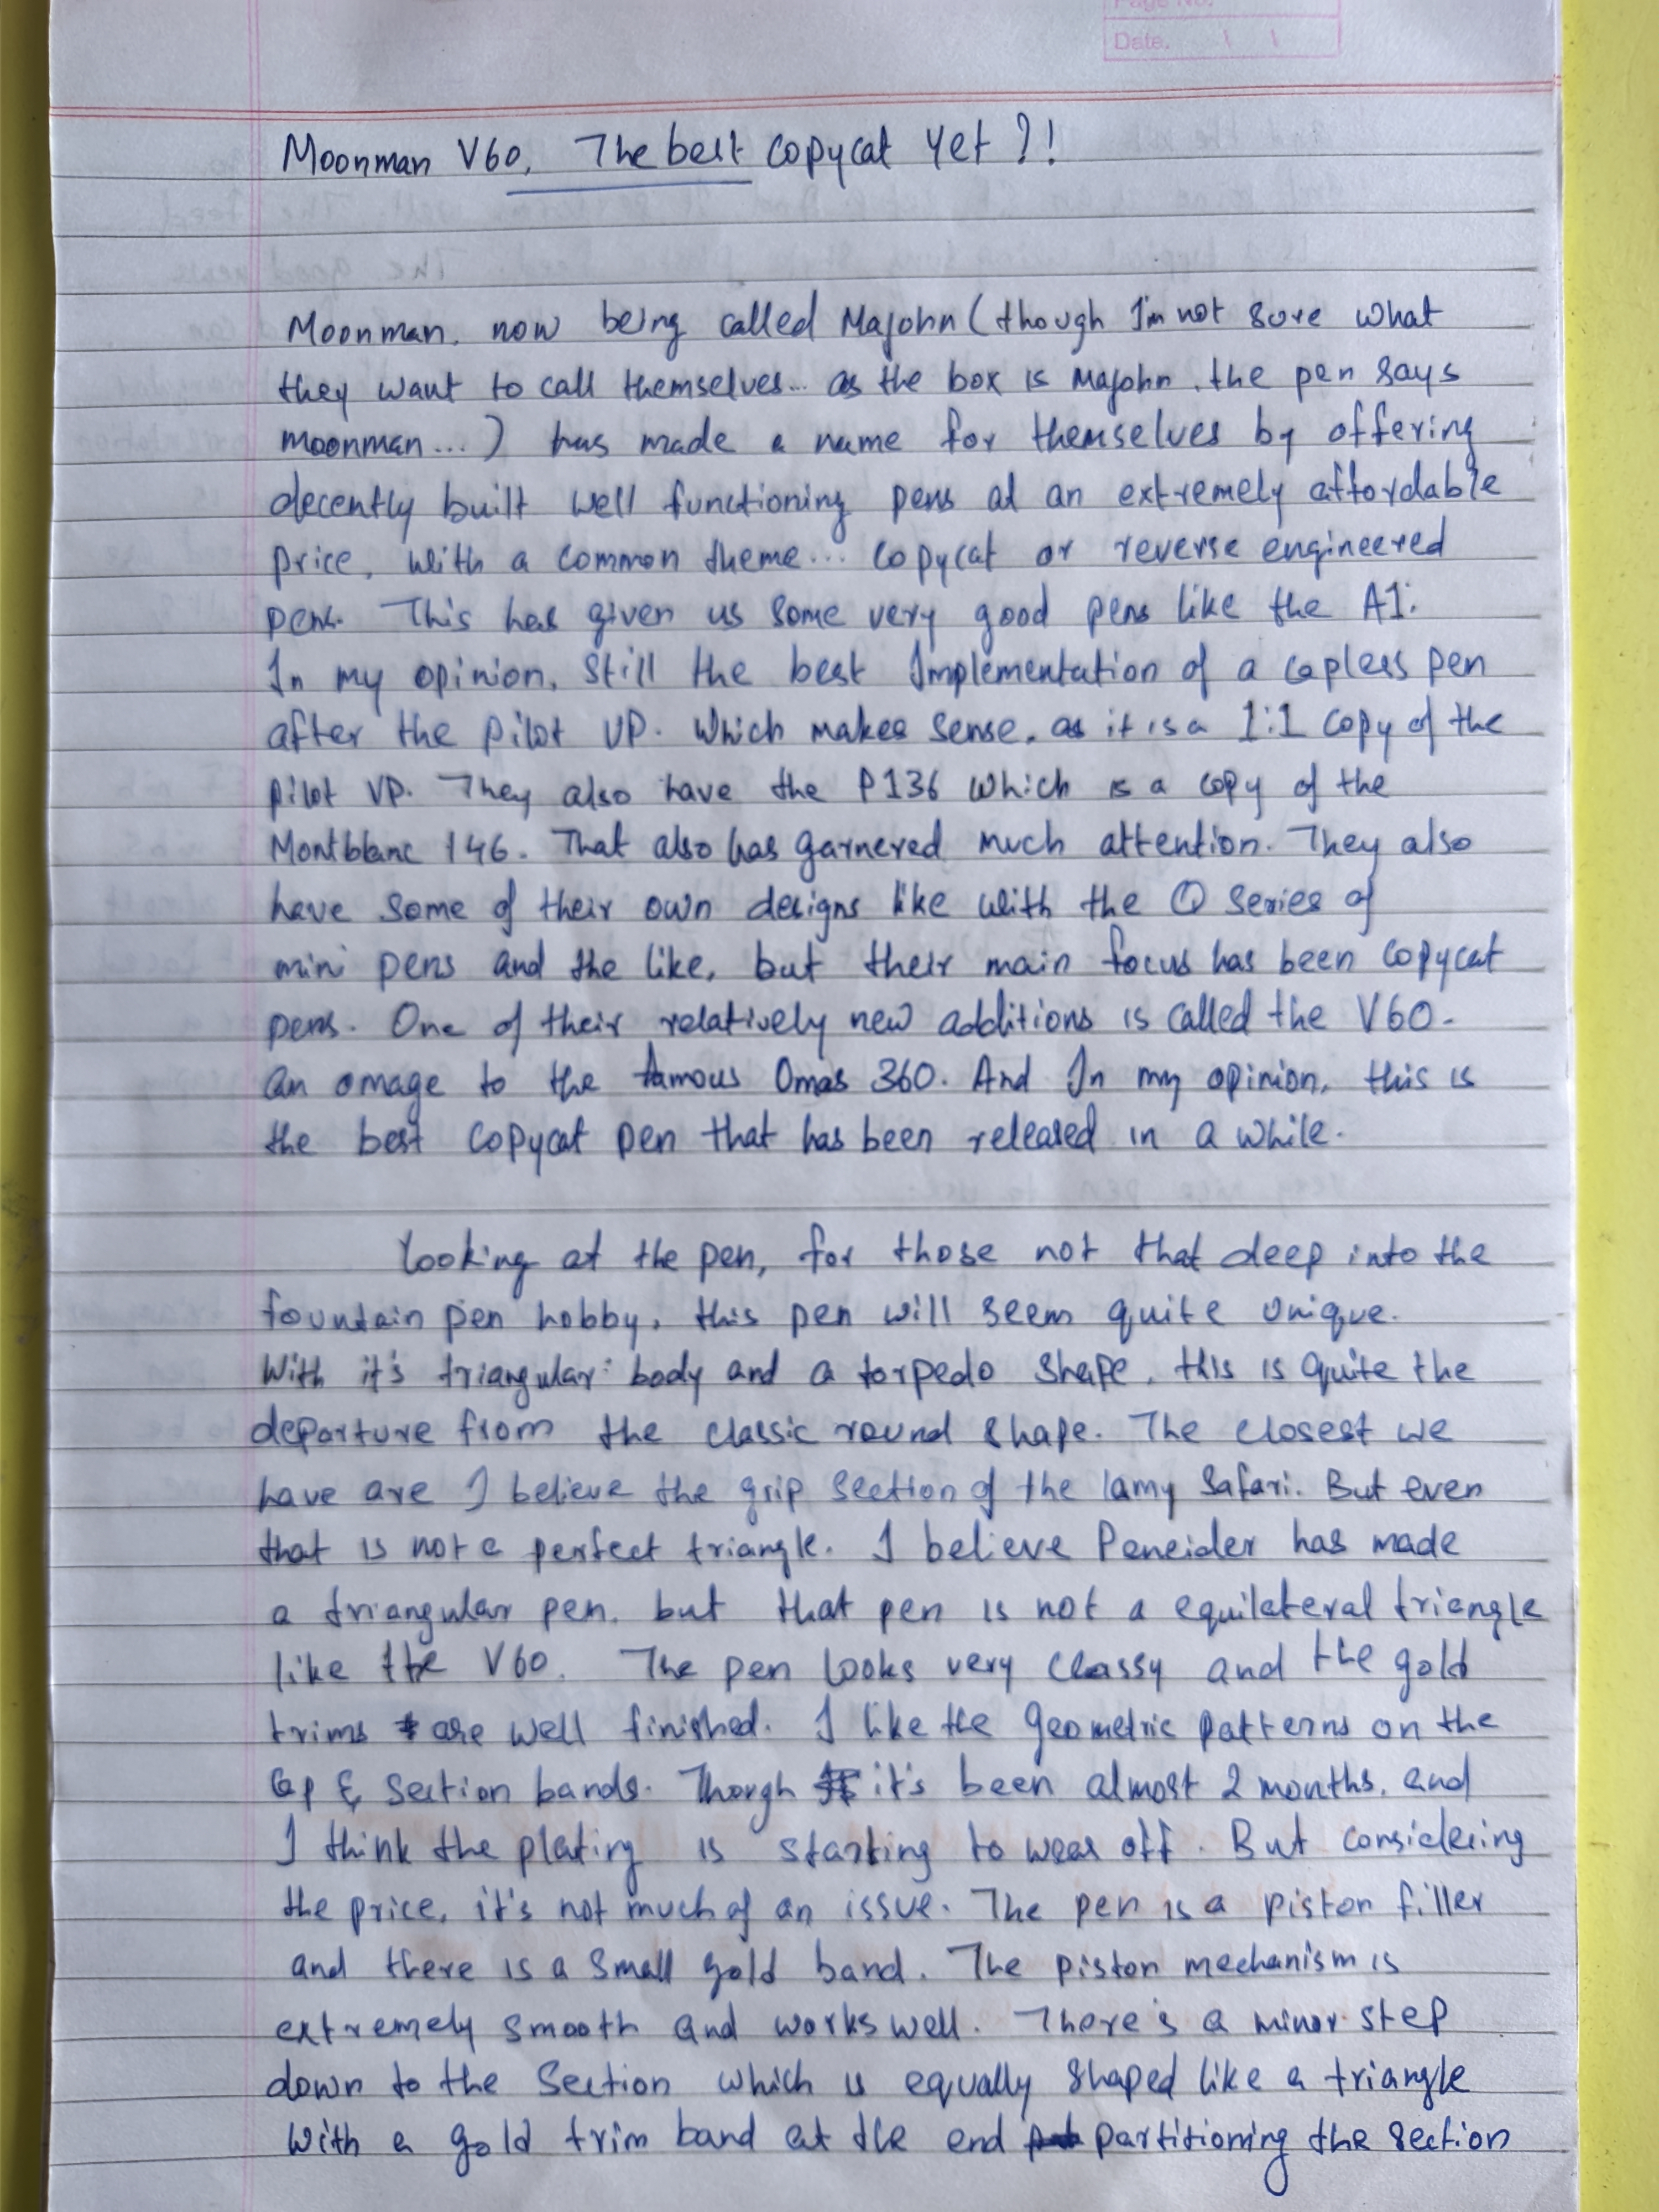 Page No.
Date.
Moonman V60, The best copycat yet?!
Moonman, now being called Majohn (though I'm not sure what
they want to call themselves... as the box is Majohn, the pen says
moonman...) has made a name for themselves by offering
decently built well functioning pens at an extremely affordable
price, with a common theme... copycat or reverse engineered
pens. This has given us some very good pens like the A1.
In my opinion, still the best Implementation of a capless pen
after the pilot VP. Which makes sense, as it is a 1:1 copy of the
pilot VP. They also have the P136 which is a copy of the
Montblanc 146. That also has garnered much attention. They also
have some of their own designs like with the Q series of
mini pens and the like, but their main focus has been copycat
pens. One of their relatively new additions is called the V60.
an omage to the famous Omas 360. And In my opinion, this is
the best copycat pen that has been released in a while.
looking at the pen, for those not that deep into the
fountain pen hobby, this pen will seem quite unique.
With it's triangular body and a torpedo shape, this is quite the
departure from the classic round shape. The closest we
have are I believe the grip section of the lamy Safari. But even
that is not a perfect triangle. I believe Peneider has made
a triangular pen, but that pen is not a equilateral triangle
like the V60. The pen looks very classy and the gold
trims are well finished. I like the geometric patterns on the
Cap & section bands. Thorgh it's been almost 2 months, and
I think the plating is starting to wear off. But considering
the price, it's not much of an issue. The pen is a piston filler
and there is a small gold band. The piston mechanism is
extremely smooth and works well. There's a minor step
down to the section which is equally shaped like a triangle
with a gold trim band at the end partitioning the section